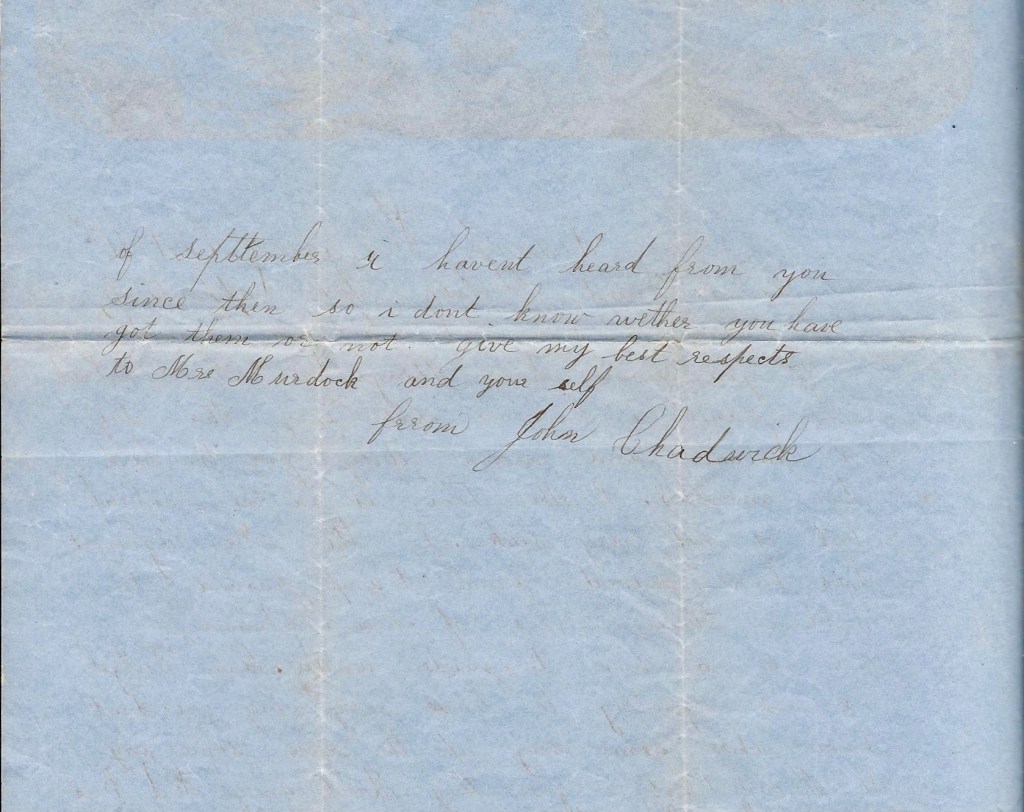 of septtember i havent heard from you
since then so i dont know wether you have
got them or not. give my best respects
to Mrs Murdock and your self
from John Chadwick